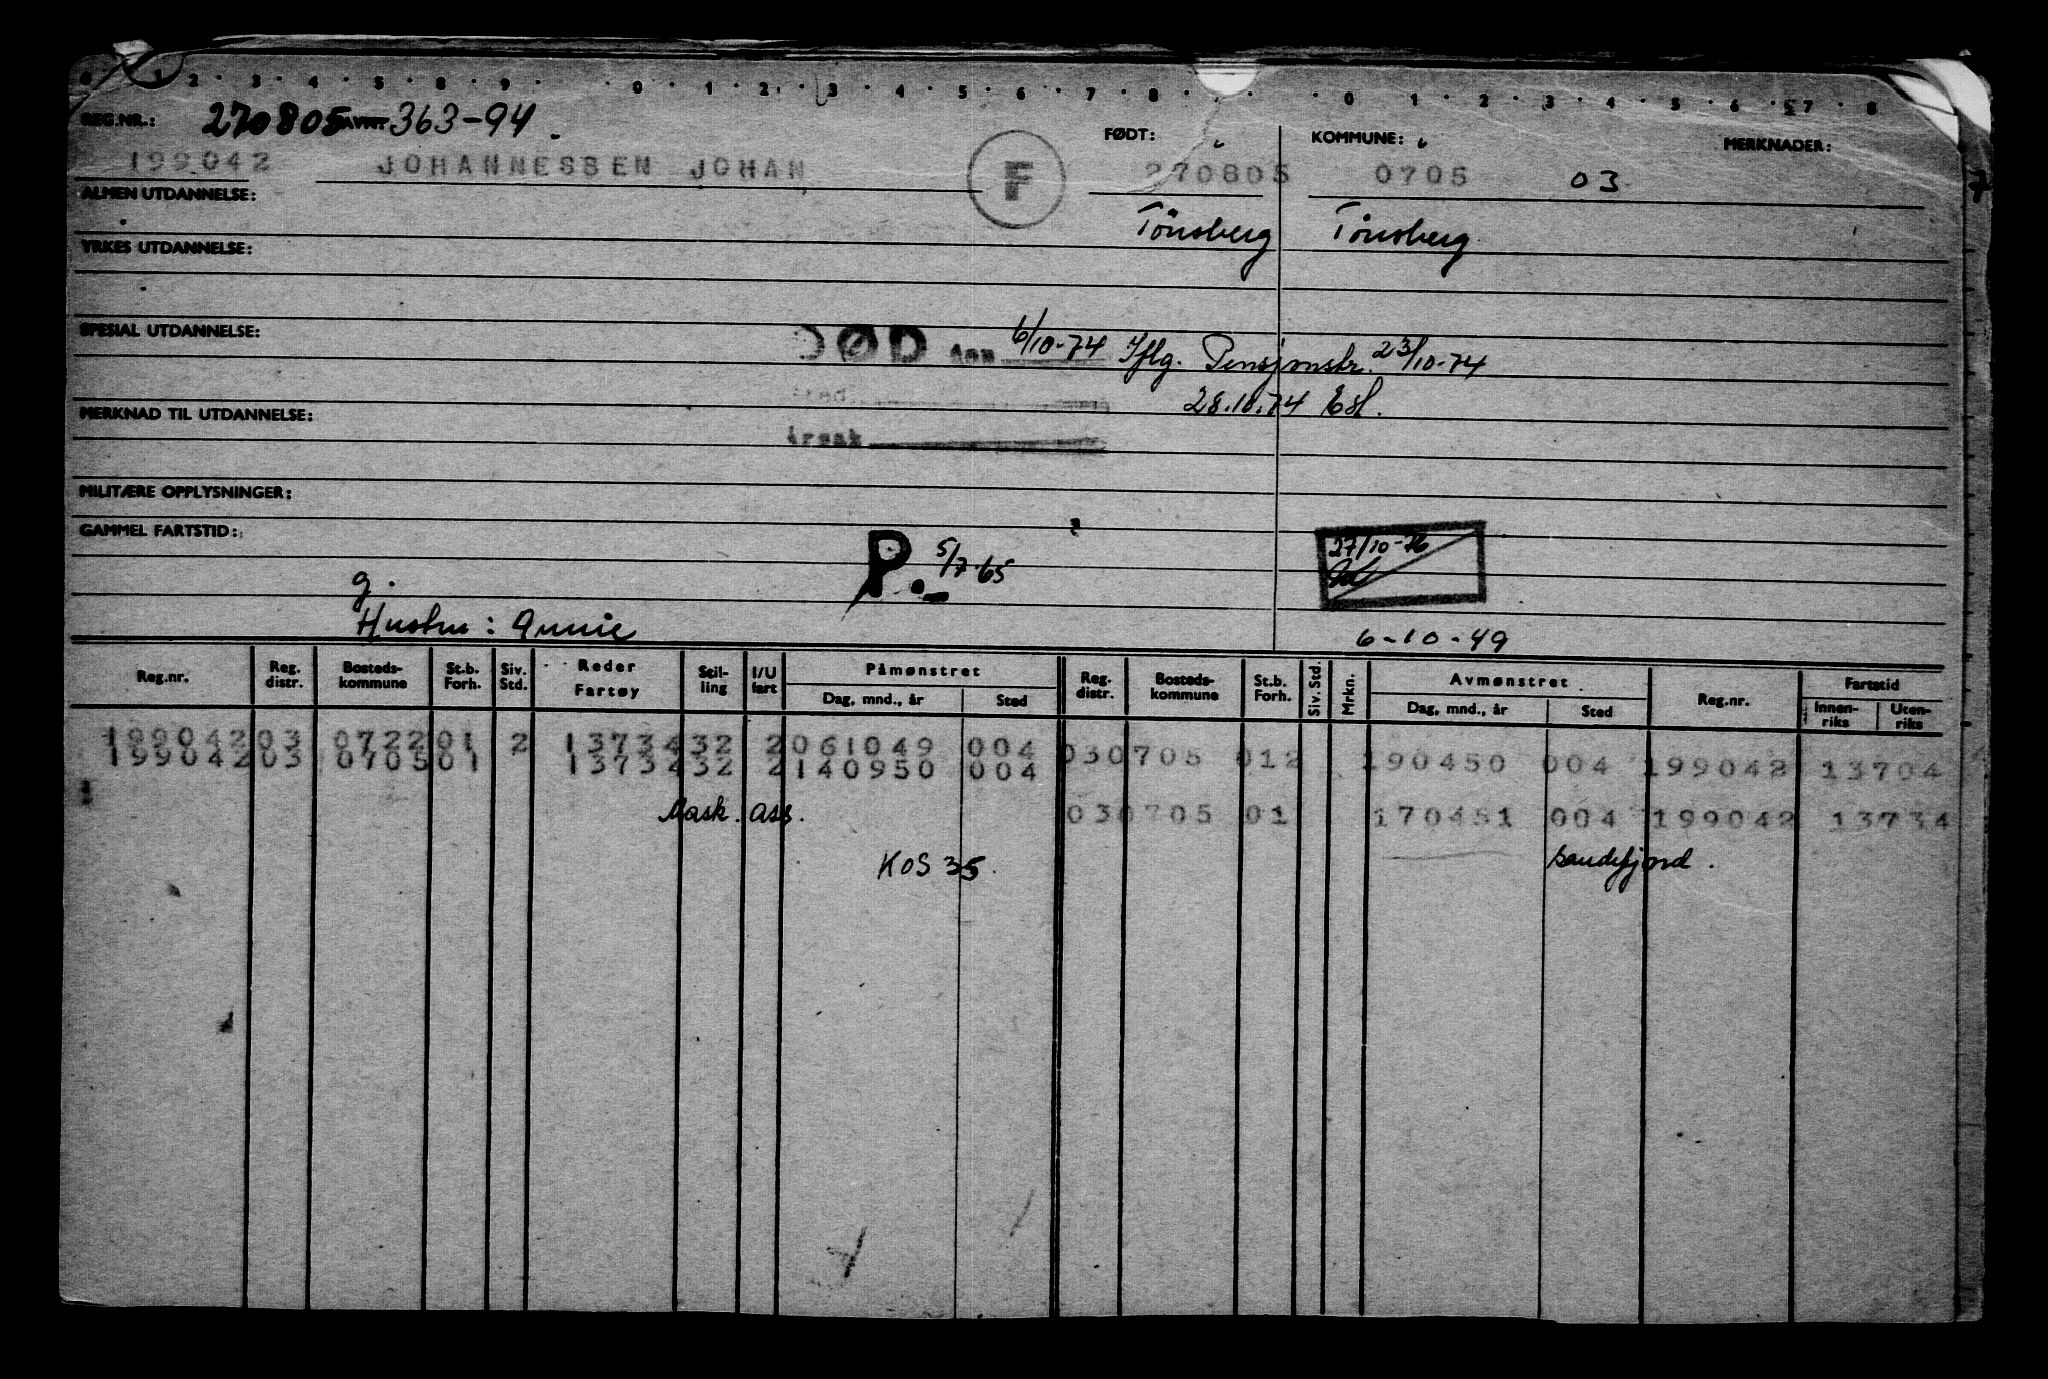 0 1 2 3 4 5 8 9 0 1 2 3 4 5 6 7 8 0 1 2 3 4 5 6 7 8
REG.NR.: 270805 363-94. FØDT: KOMMUNE: MERKNADER:
199042 JOHANNESSEN JOHAN F 270805 0705 03 7
ALMEN UTDANNELSE:
Tönsberg Tönsberg
YRKES UTDANNELSE:
SPESIAL UTDANNELSE:
DØD den 6/10-74 Iflg. Pensjonstr. 23/10-74
sted 28.10.74 Esl.
MERKNAD TIL UTDANNELSE:
årsak
MILITÆRE OPPLYSNINGER:
GAMMEL FARTSTID:
P. 5/7-65 27/10-76
g.
Hustru: Annie 6-10-49
Reg.nr. Reg. distr. Bosteds-kommune St.b. Forh. Siv. Std. Reder Fartøy Stil-ling I/U fart Påmønstret Dag, mnd., år Sted Reg. distr. Bosteds-kommune St.b. Forh. Siv. Std. Mrkn. Avmønstret Dag, mnd., år Sted Reg.nr. Fartstid Innen-riks Uten-riks
199042 03 0722 01 2 13734 32 2 061049 004 030705 012 190450 004 199042 13704
199042 03 0705 01 13734 32 2 140950 004
Mask. ass. 030705 01 170451 004 199042 13734
KOS 35 Sandefjord.